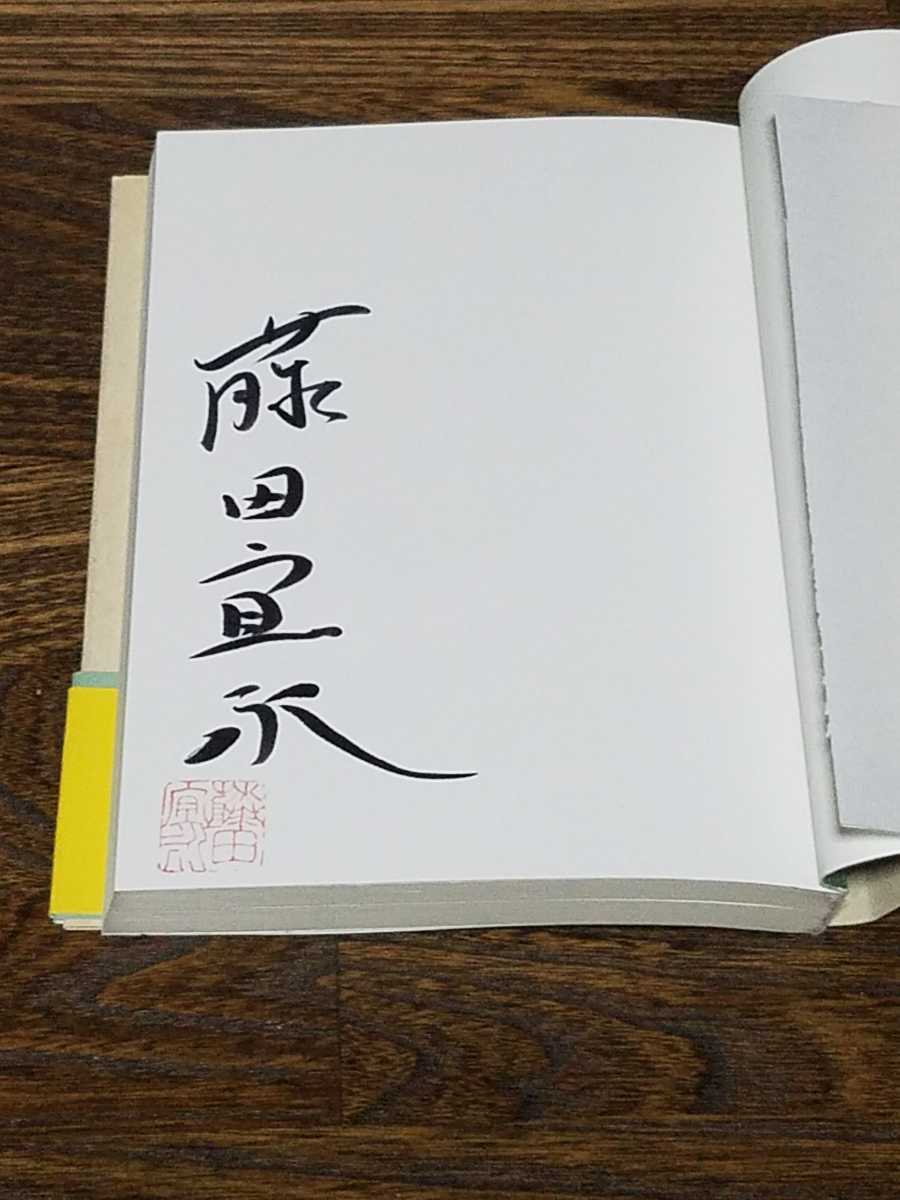 藤田宜永
藤田
宜永